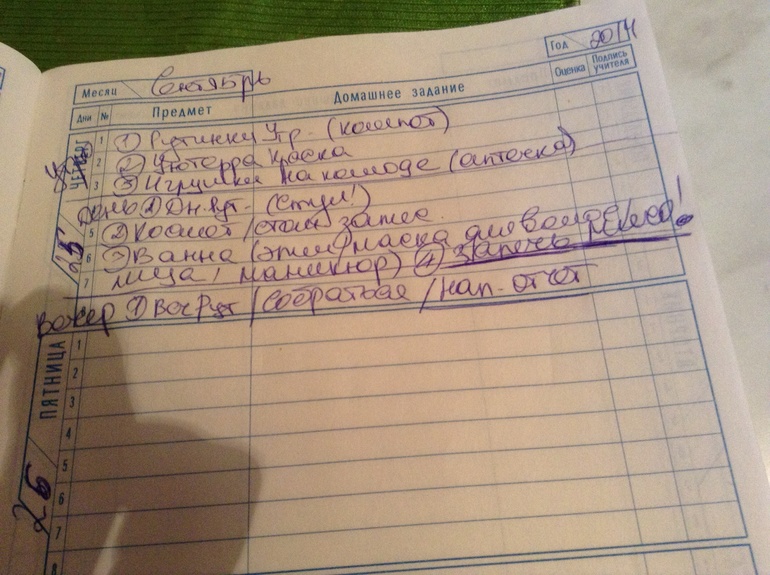 Год 2014
Месяц Сентябрь
Дни № Предмет Домашнее задание Оценка Подпись учителя
ЧЕТВЕРГ 25
1 ① Рутинки Утр. (компот)
2 ② краска
3 ③ Игрушки на комоде (аптечка)
День ① Дн. Рут. (Стул!)
5 ② Компот /
6 ③ Ванна (эпил/маска для волос
7 лица/маникюр) ④ запечь мясо!
Вечер ① Веч Рут /Собраться /Нап. отчет
ПЯТНИЦА 26
1
2
3
4
5
6
7
8